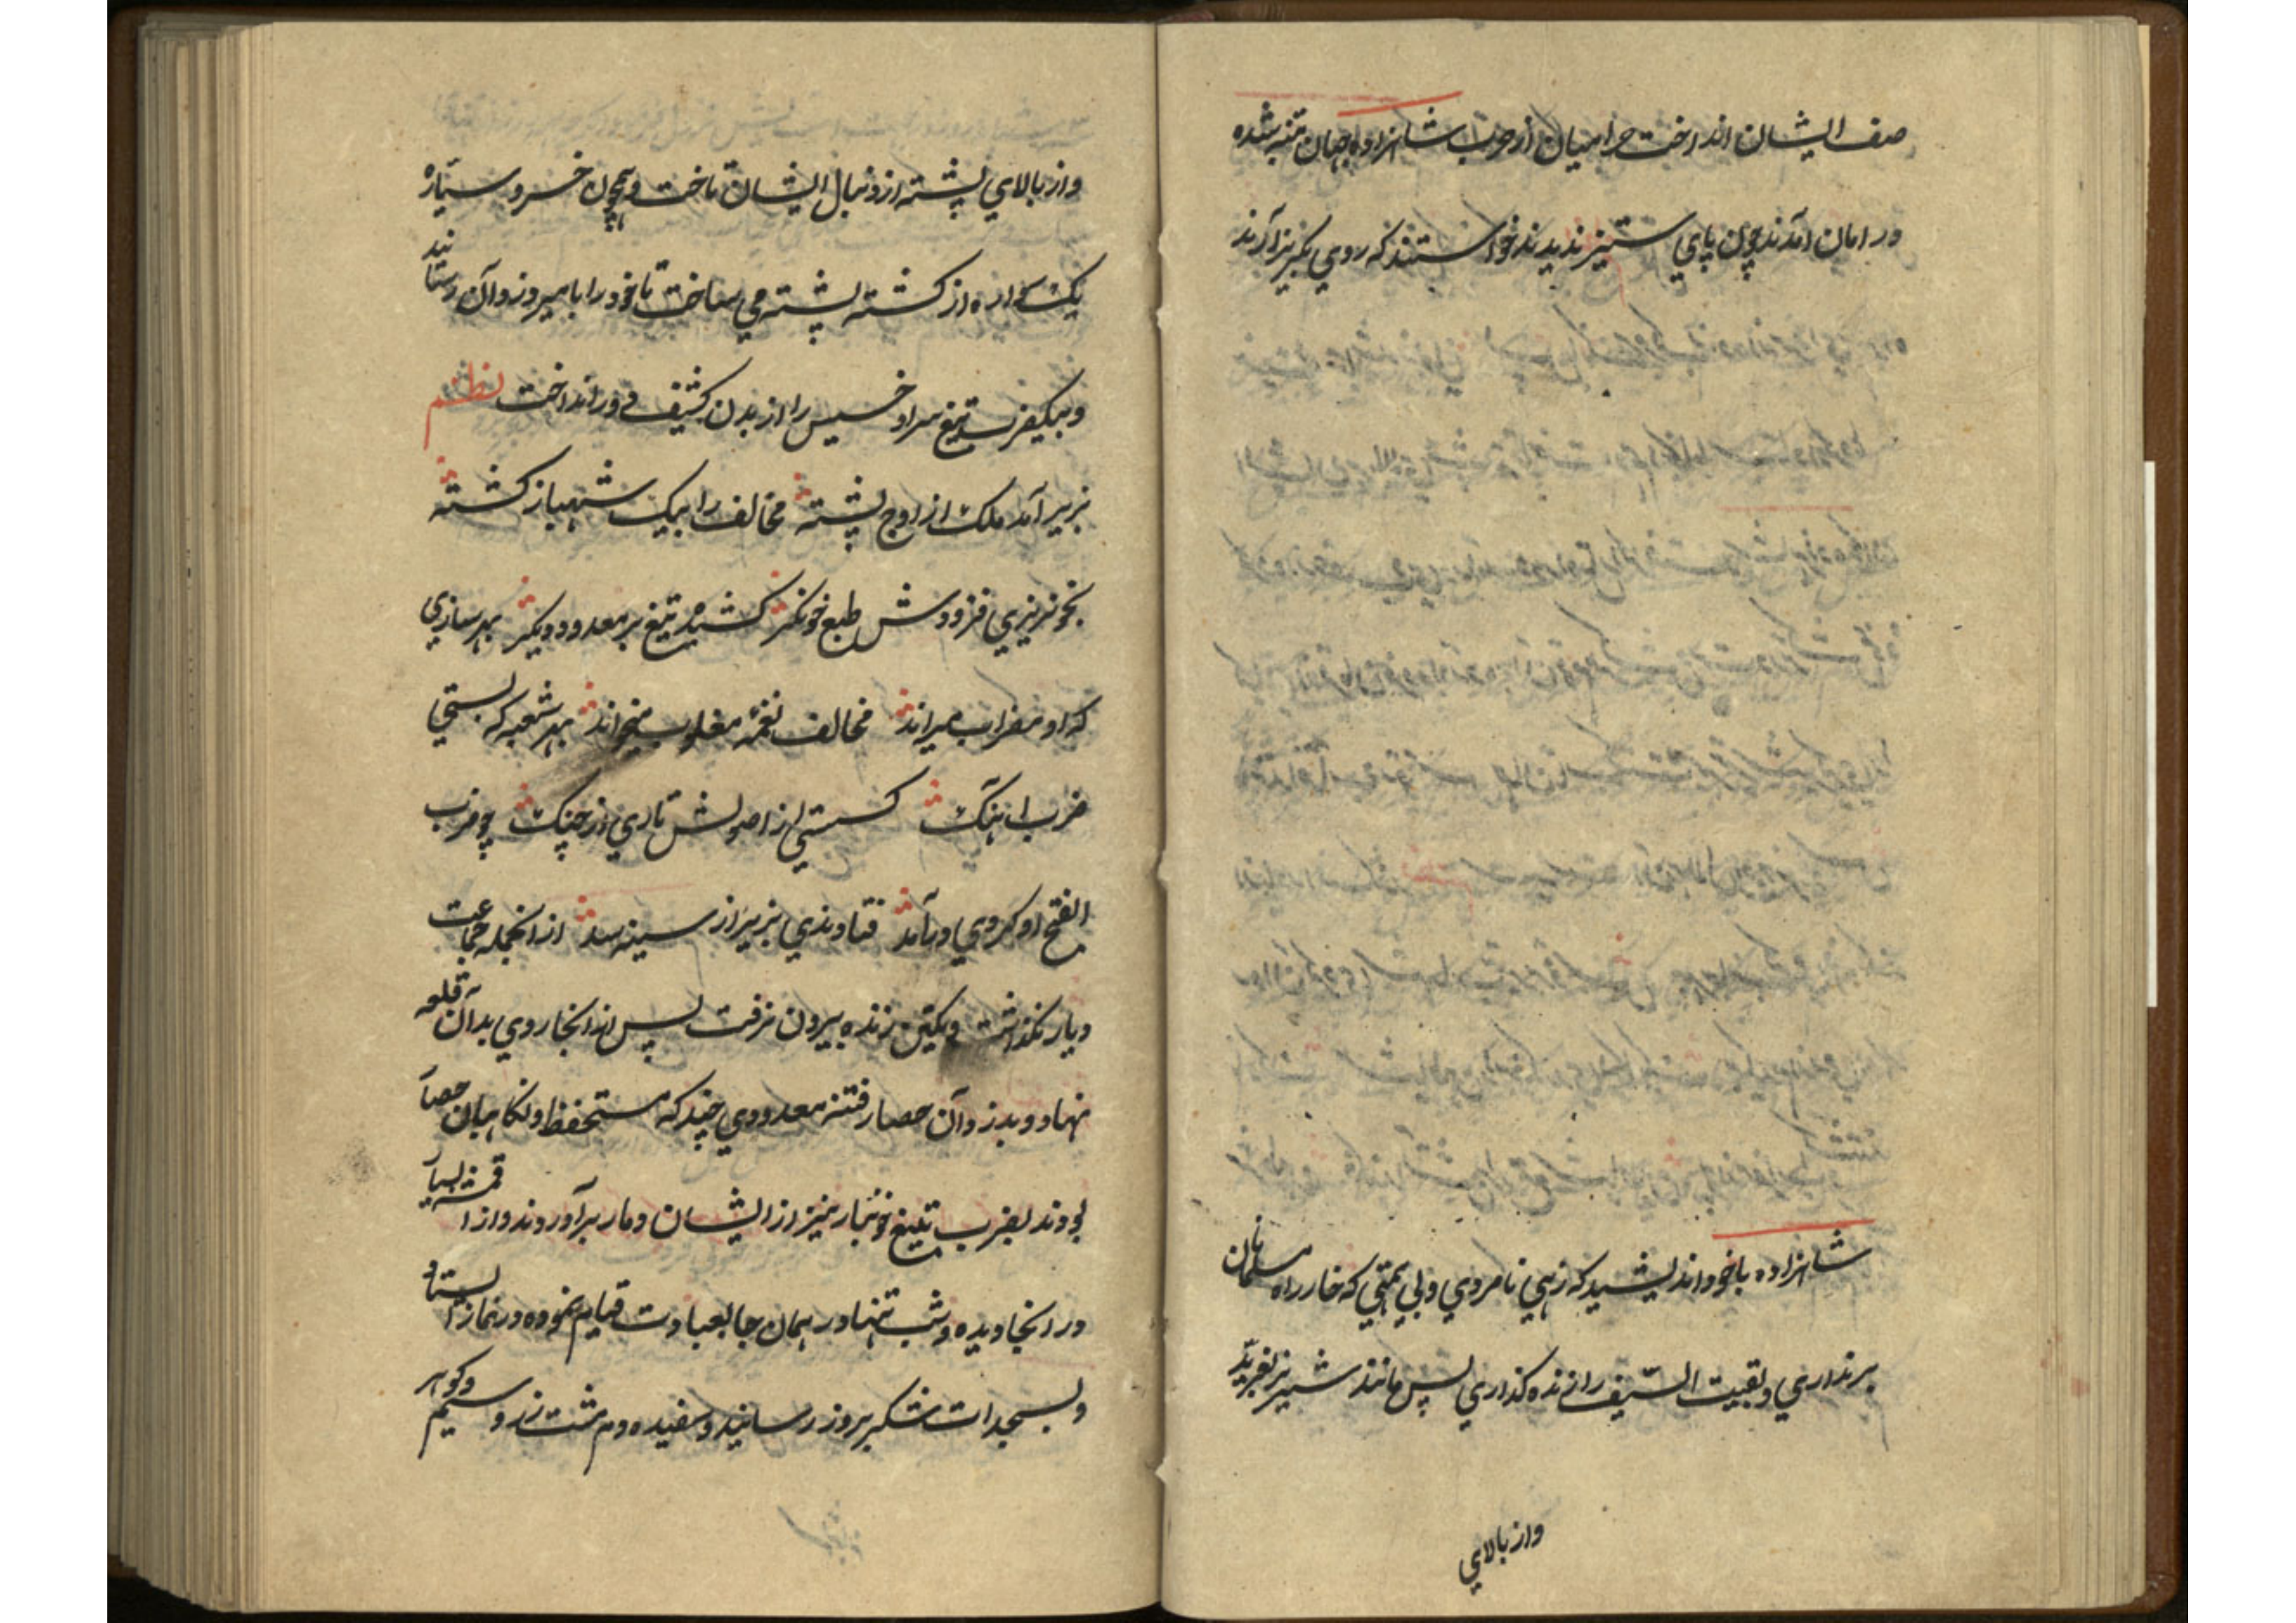 صف ایشان انداخت حرامیان از حرب شاهزاده جهان متنبه شده
در امان آمدند چون پای ستیز ندیدند خواستند که روی بگریز آرند
شاهزاده با خود اندیشید که زهی نامردی و بی همتی که خار راه مسلمانان
برنداری و بقیت السیف را زنده گذاری پس مانند شیر نر بغرید
واز بالای
واز بالای پشته از دنبال ایشان تاخت و همچون خسرو سیاره
یک سواره از کشته پشته می ساخت تا خود را بامیر دزد آن رسانید
و بیکضرب تیغ سر او خسیس را از بدن کثیف دور انداخت نظم
بزیر آمد ملک از اوج پشته مخالف را بیک شهباز کشته
بخونریزی فزودش طبع خونگر کشیده تیغ بر معدود دیگر بهر سازی
که او مضراب میراند مخالف نغمه مغلوب میخواند بهر شعبه که بستی
ضرب آهنگ کسستی از اصولش تاری از چنگ چو ضرب
الفتح او کردی در آمد فتاوندی بزیر از سینه سد از انجمله جماعت
دیار نگذاشت و یکتن زنده بیرون نرفت پس از انجا روی بدان قلعه
نهاد و بدزد آن حصار فتنه معدودی چند که مستحفظ و نگاهبان حصار
بودند بضرب تیغ خونبار نیز از ایشان دمار برآوردند و از اقمشه بسیار
در انجا دیده و شب تنها در همان جا بعبادت قیام نموده در نماز استاد
و بسجدات شکر بروز رسانید و سفیده دم مشت زر و سیم و گوهر